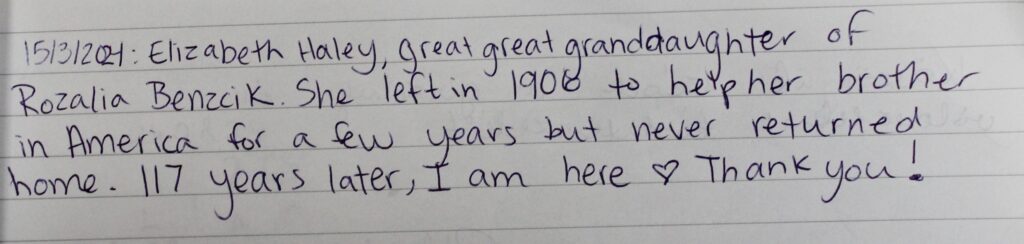 15/3/2024: Elizabeth Haley, great great granddaughter of
Rozalia Benzcik. She left in to help her brother
in America for a few years but never returned
home. 117 years later, I am here ♡ Thank you!